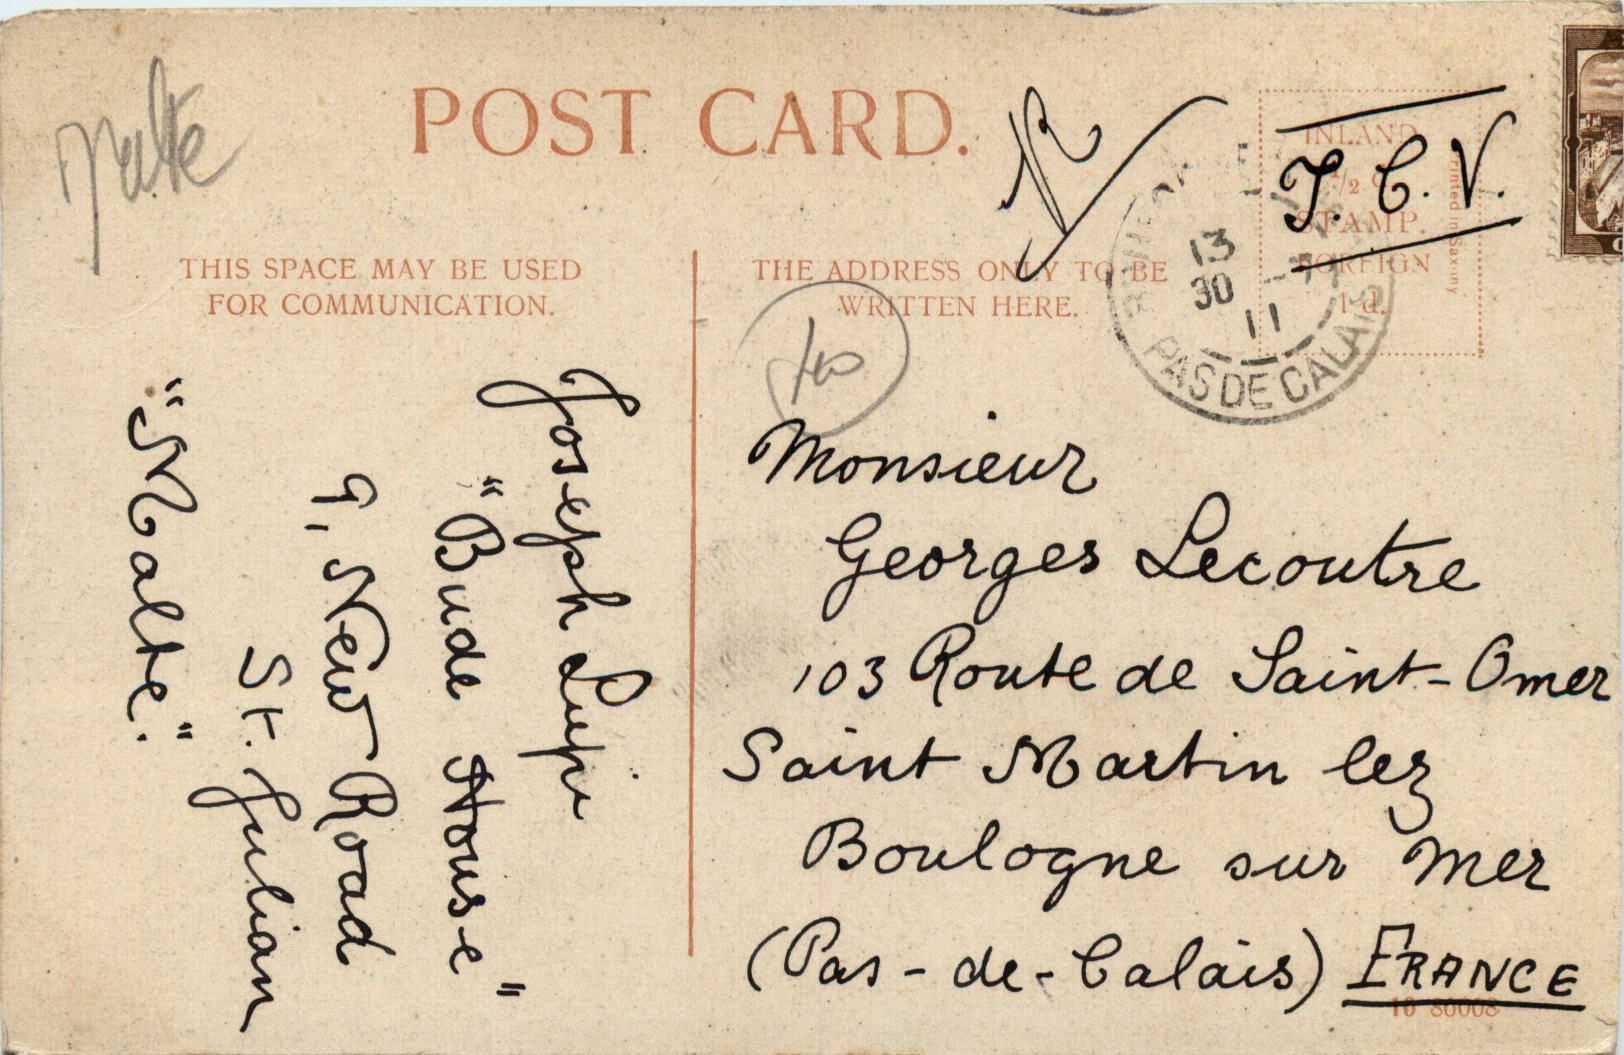 Malte
POST CARD.
R
T.C.V.
INLAND
½ d
STAMP.
FOREIGN
1 d.
Printed in Saxony
13
30 -7
11
PAS DE CALAIS
THIS SPACE MAY BE USED
FOR COMMUNICATION.
THE ADDRESS ONLY TO BE
WRITTEN HERE.
Joseph Lupi
"Bude House"
9, New Road
St. Julian
"Malte."
Monsieur
Georges Lecoutre
103 Route de Saint-Omer
Saint Martin lez
Boulogne sur Mer
(Pas-de-Calais) FRANCE
10 80008